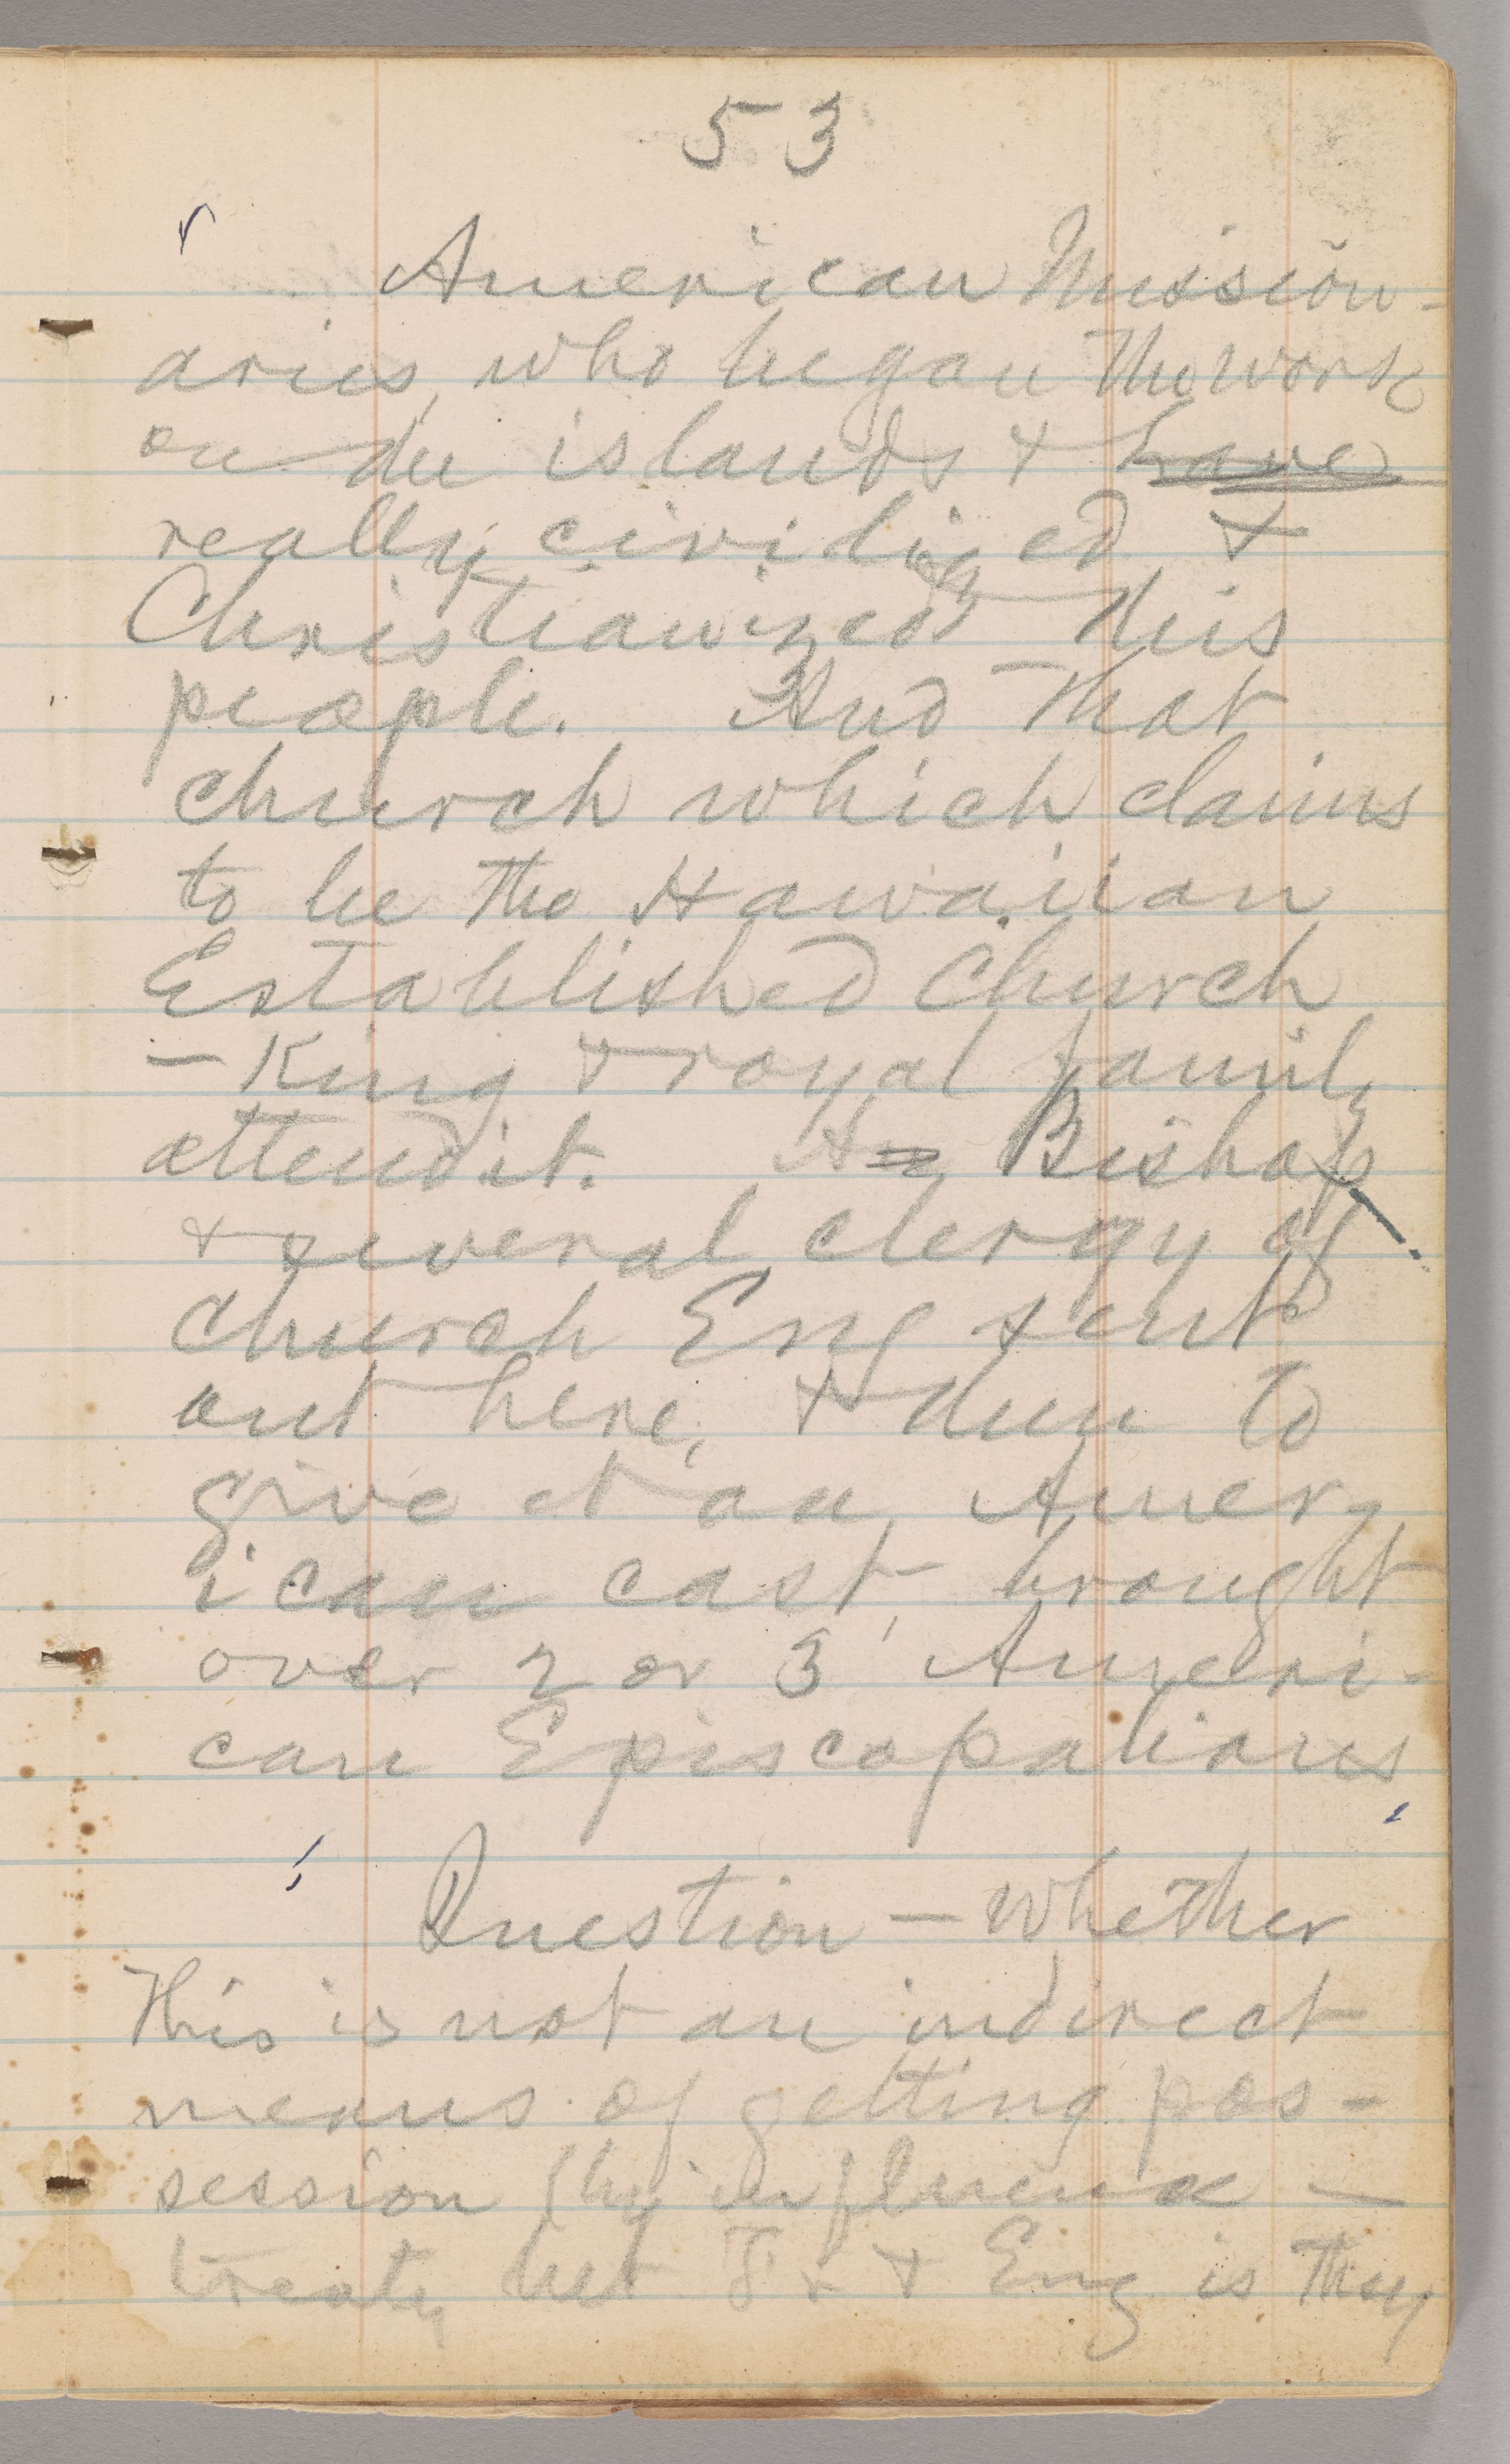 53
American Mission-
aries, who began the work
on the islands & have
really civilized &
Christianized this
people. And that
church which claims
to be the Hawaiian
Established Church
— King & royal family
attend it. A Bishop
& several clergy of
Church Eng sent
out here, & then to
give it an Amer-
ican cast, brought
over 2 or 3 Ameri-
can Episcopalians
Question — Whether
this is not an indirect
means of getting pos-
session (by influence —
treaty bet Fr & Eng is they